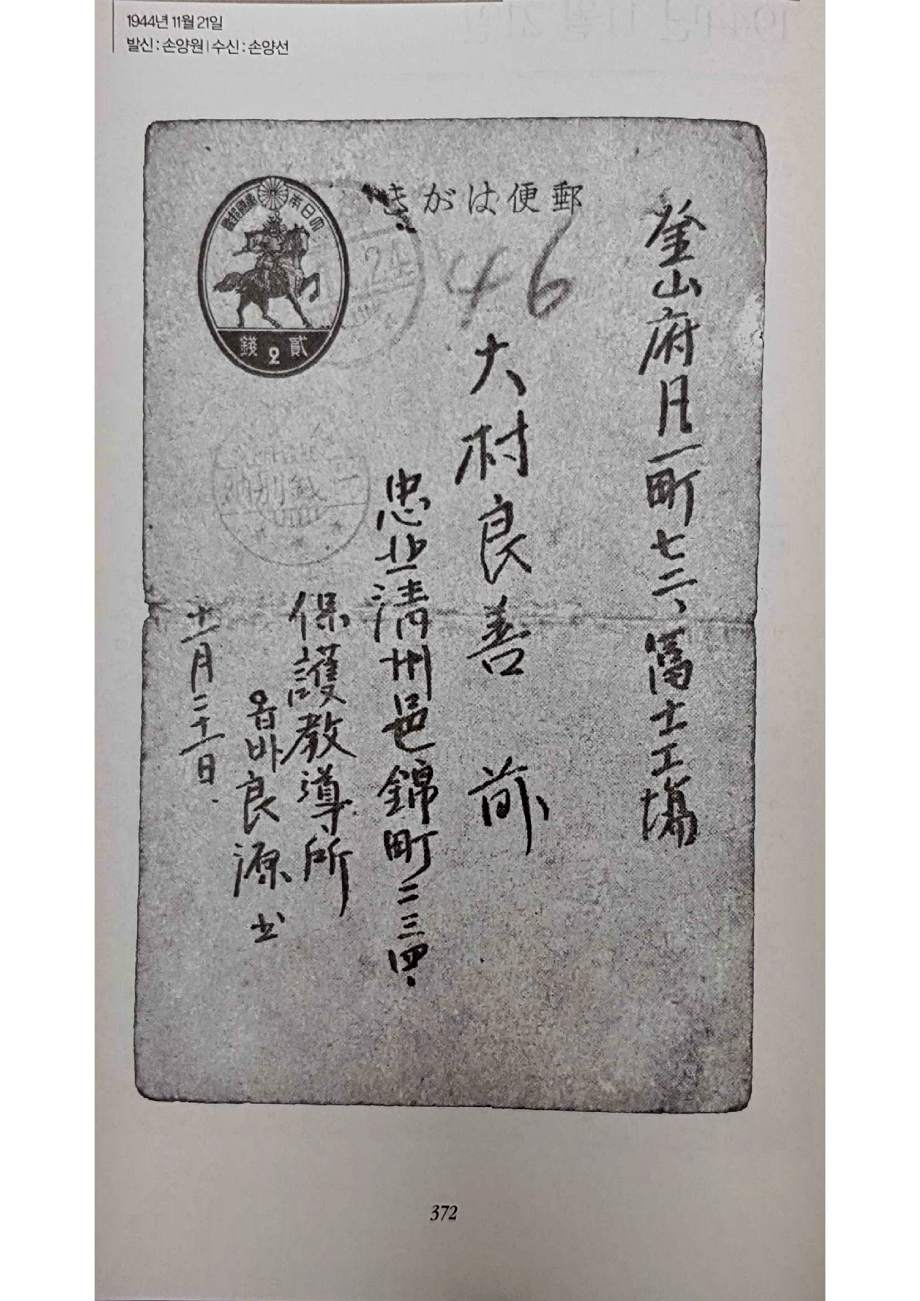 1944년 11월 21일
발신 : 손양원 | 수신 : 손양선
きがは便郵
大日本
錢 2 貳
46
釜山府月一町七二、富士工場
大村良善 前
忠北清州邑錦町二三四.
保護教導所
옵바良源 书
十一月二十一日.
372